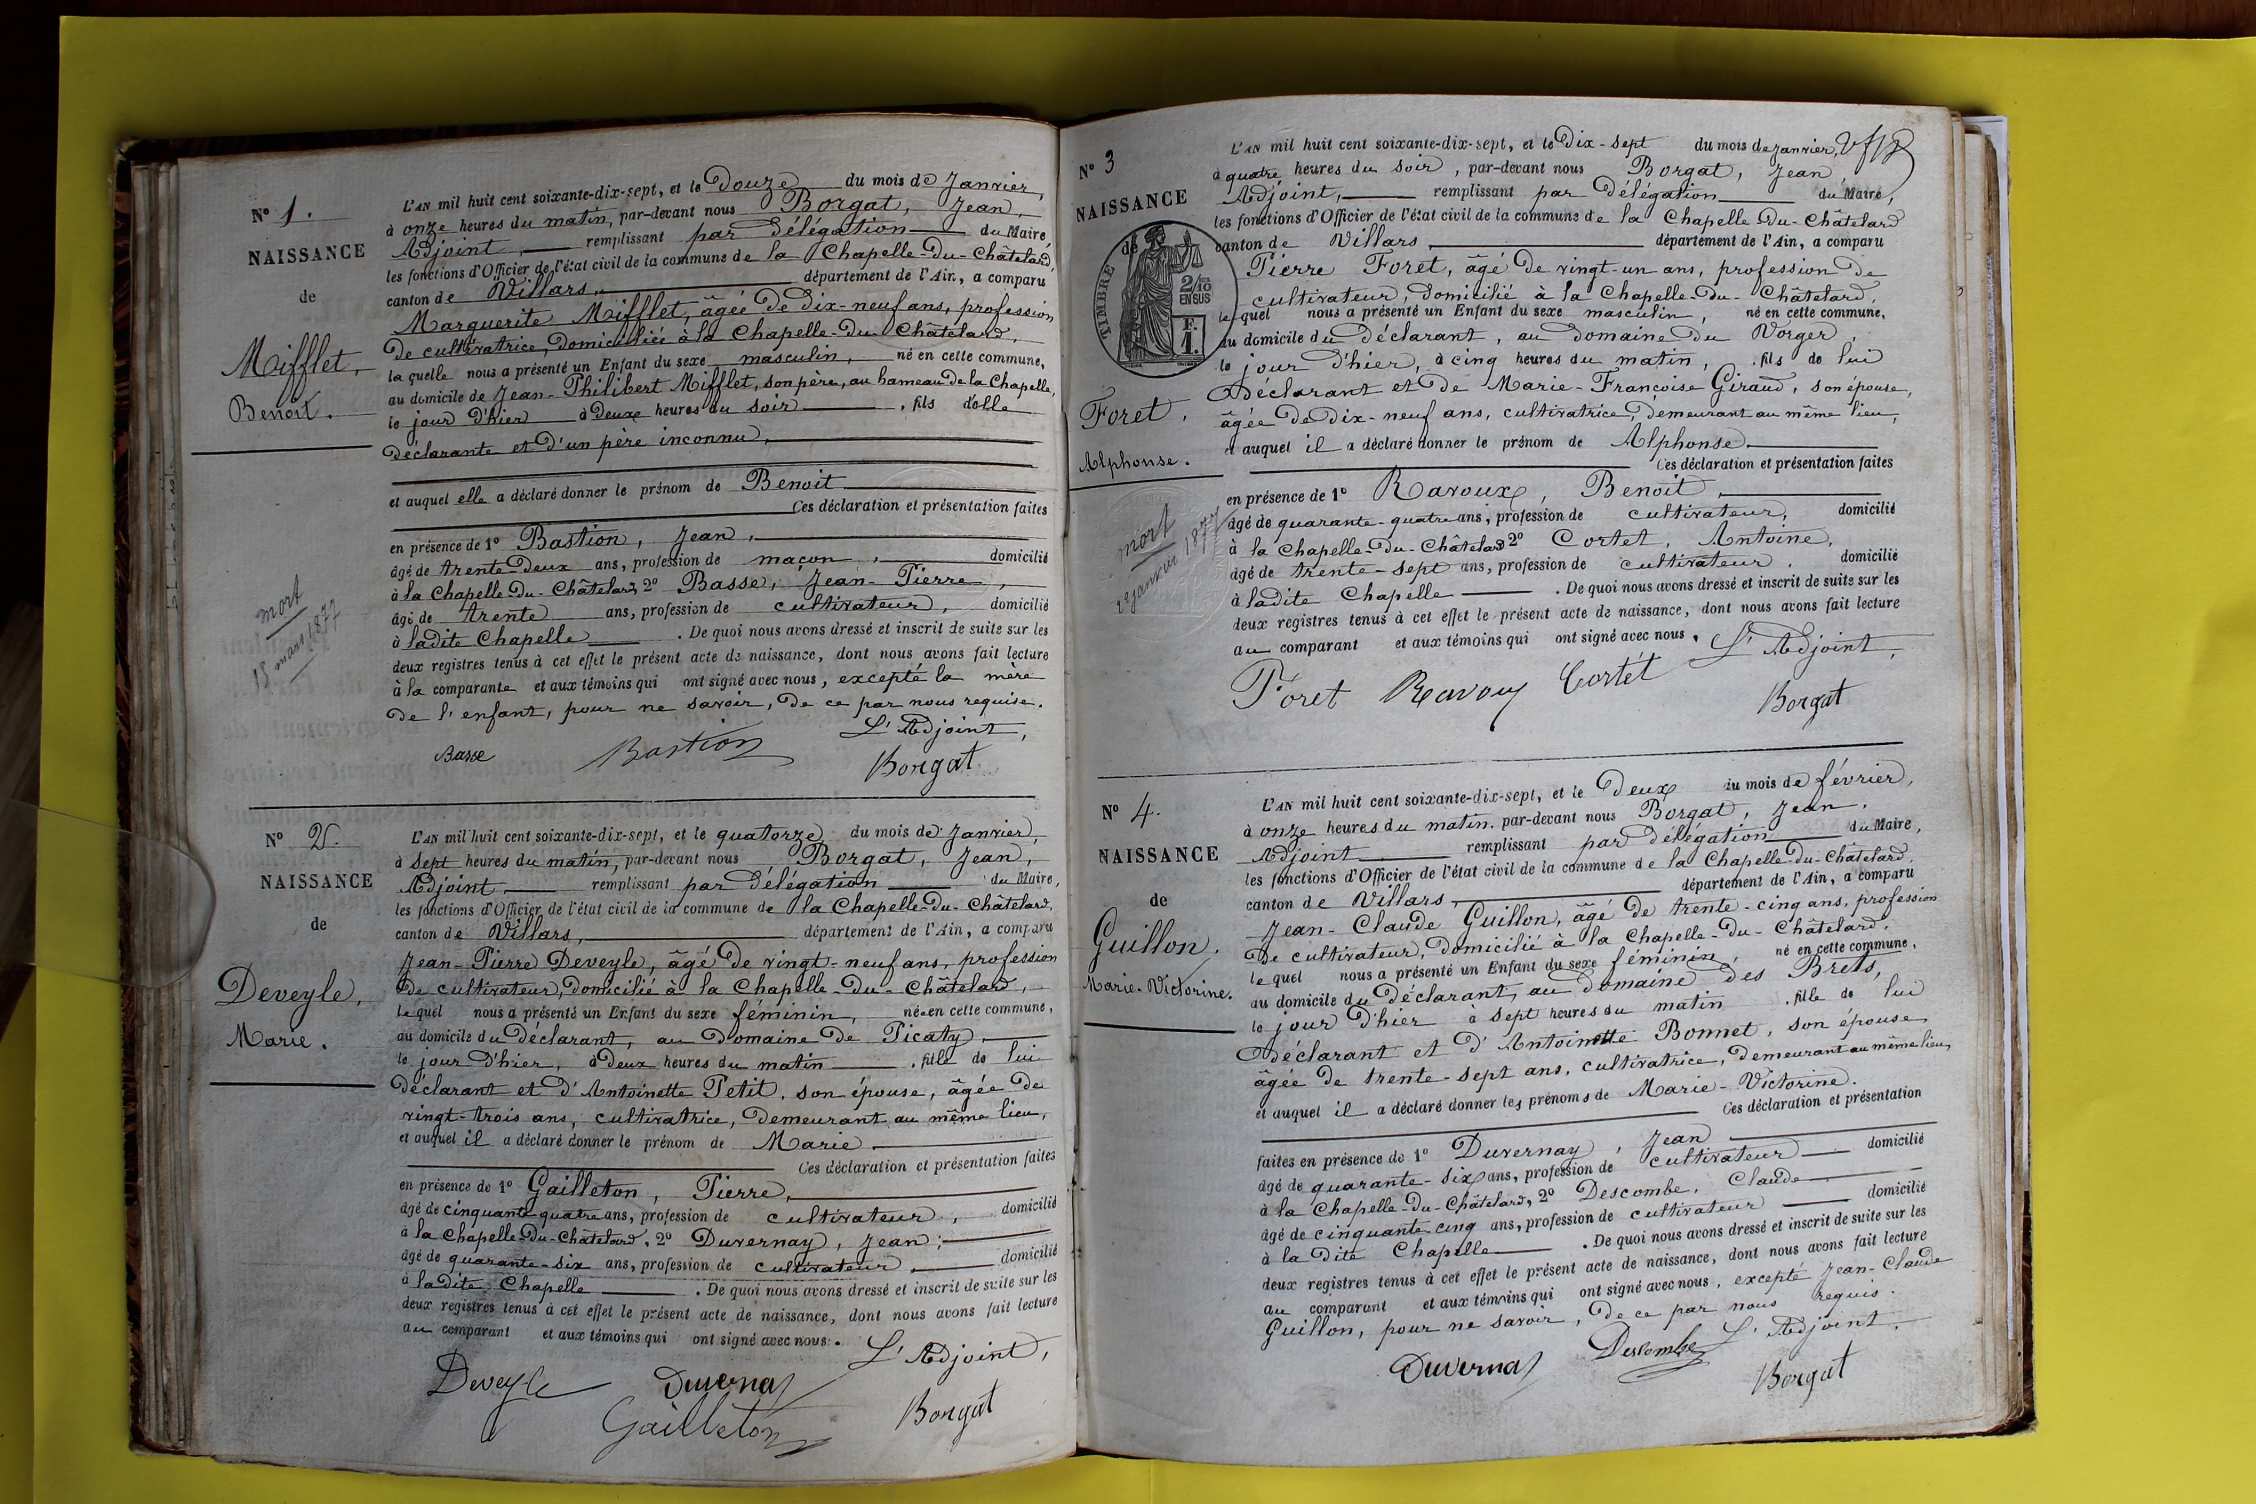 N° 1.
NAISSANCE
de
Mifflet,
Benoit.
mort
18 mars 1877
L'AN mil huit cent soixante-dix-sept, et le Douze du mois de Janvier,
à onze heures du matin, par-devant nous Borgat, Jean,
Adjoint, remplissant par délégation du Maire,
les fonctions d'Officier de l'état civil de la commune de la Chapelle-du-Châtelard,
canton de Villars, département de l'Ain, a comparu
Marguerite Mifflet, âgée de dix-neuf ans, profession
de cultivatrice, domiciliée à la Chapelle-du-Châtelard,
laquelle nous a présenté un Enfant du sexe masculin, né en cette commune,
au domicile de Jean-Philibert Mifflet, son père, au hameau de la Chapelle,
le jour d'hier à deux heures du soir , fils d'elle
déclarante et d'un père inconnu,
et auquel elle a déclaré donner le prénom de Benoit
Ces déclaration et présentation faites
en présence de 1° Bastion, Jean,
âgé de trente-deux ans, profession de maçon, domicilié
à la Chapelle-du-Châtelard, 2° Basse, Jean-Pierre,
âgé de trente ans, profession de cultivateur, domicilié
à ladite Chapelle . De quoi nous avons dressé et inscrit de suite sur les
deux registres tenus à cet effet le présent acte de naissance, dont nous avons fait lecture
à la comparante et aux témoins qui ont signé avec nous, excepté la mère
de l'enfant, pour ne savoir, de ce par nous requise.
L'Adjoint,
Basse Bastion Borgat
N° 2.
NAISSANCE
de
Deveyle,
Marie.
L'AN mil huit cent soixante-dix-sept, et le quatorze du mois de Janvier,
à sept heures du matin, par-devant nous Borgat, Jean,
Adjoint remplissant par délégation du Maire,
les fonctions d'Officier de l'état civil de la commune de la Chapelle-du-Châtelard,
canton de Villars, département de l'Ain, a comparu
Jean-Pierre Deveyle, âgé de vingt-neuf ans, profession
de cultivateur, domicilié à la Chapelle-du-Châtelard,
lequel nous a présenté un Enfant du sexe féminin, née en cette commune,
au domicile du déclarant, au domaine de Picaty,
le jour d'hier, à deux heures du matin , fille de lui
déclarant et d'Antoinette Petit, son épouse, âgée de
vingt-trois ans, cultivatrice, demeurant au même lieu,
et auquel il a déclaré donner le prénom de Marie
Ces déclaration et présentation faites
en présence de 1° Gailleton, Pierre,
âgé de cinquante quatre ans, profession de cultivateur, domicilié
à la Chapelle-du-Châtelard, 2° Duvernay, Jean,
âgé de quarante-six ans, profession de cultivateur, domicilié
à ladite Chapelle . De quoi nous avons dressé et inscrit de suite sur les
deux registres tenus à cet effet le présent acte de naissance, dont nous avons fait lecture
au comparant et aux témoins qui ont signé avec nous.
L'Adjoint,
Deveyle Duvernay
Gailleton Borgat
N° 3
NAISSANCE
de
TIMBRE
2/10
EN SUS
F.
1.
Foret,
Alphonse.
mort
janvier 1877
L'AN mil huit cent soixante-dix-sept, et le Dix-sept du mois de Janvier,
à quatre heures du soir, par-devant nous Borgat, Jean
Adjoint, remplissant par délégation du Maire,
les fonctions d'Officier de l'état civil de la commune de la Chapelle-du-Châtelard
canton de Villars département de l'Ain, a comparu
Pierre Foret, âgé de vingt-un ans, profession de
cultivateur, domicilié à la Chapelle-du-Châtelard,
lequel nous a présenté un Enfant du sexe masculin, né en cette commune,
au domicile du déclarant, au domaine du Vorger,
le jour d'hier, à cinq heures du matin, fils de lui
déclarant et de Marie-Françoise Giraud, son épouse,
âgée de dix-neuf ans, cultivatrice, demeurant au même lieu,
et auquel il a déclaré donner le prénom de Alphonse
Ces déclaration et présentation faites
en présence de 1° Ravoux, Benoit,
âgé de quarante-quatre ans, profession de cultivateur, domicilié
à la Chapelle-du-Châtelard 2° Cortet, Antoine,
âgé de trente-sept ans, profession de cultivateur, domicilié
à ladite Chapelle . De quoi nous avons dressé et inscrit de suite sur les
deux registres tenus à cet effet le présent acte de naissance, dont nous avons fait lecture
au comparant et aux témoins qui ont signé avec nous.
L'Adjoint,
Foret Ravoux Cortet
Borgat
N° 4.
NAISSANCE
de
Guillon,
Marie-Victorine.
L'AN mil huit cent soixante-dix-sept, et le Deux du mois de février,
à onze heures du matin, par-devant nous Borgat, Jean,
Adjoint remplissant par délégation du Maire,
les fonctions d'Officier de l'état civil de la commune de la Chapelle-du-Châtelard,
canton de Villars, département de l'Ain, a comparu
Jean-Claude Guillon, âgé de trente-cinq ans, profession
de cultivateur, domicilié à la Chapelle-du-Châtelard,
lequel nous a présenté un Enfant du sexe féminin, né en cette commune,
au domicile du déclarant, au domaine des Brets,
le jour d'hier à sept heures du matin , fille de lui
déclarant et d'Antoinette Bonnet, son épouse
âgée de trente-sept ans, cultivatrice, demeurant au même lieu,
et auquel il a déclaré donner les prénoms de Marie-Victorine.
Ces déclaration et présentation
faites en présence de 1° Duvernay, Jean
âgé de quarante-six ans, profession de cultivateur domicilié
à la Chapelle-du-Châtelard, 2° Descombe, Claude
âgé de cinquante cinq ans, profession de cultivateur domicilié
à la dite Chapelle . De quoi nous avons dressé et inscrit de suite sur les
deux registres tenus à cet effet le présent acte de naissance, dont nous avons fait lecture
au comparant et aux témoins qui ont signé avec nous, excepté Jean-Claude
Guillon, pour ne savoir, de ce par nous requis.
L'Adjoint,
Duvernay Descombe
Borgat